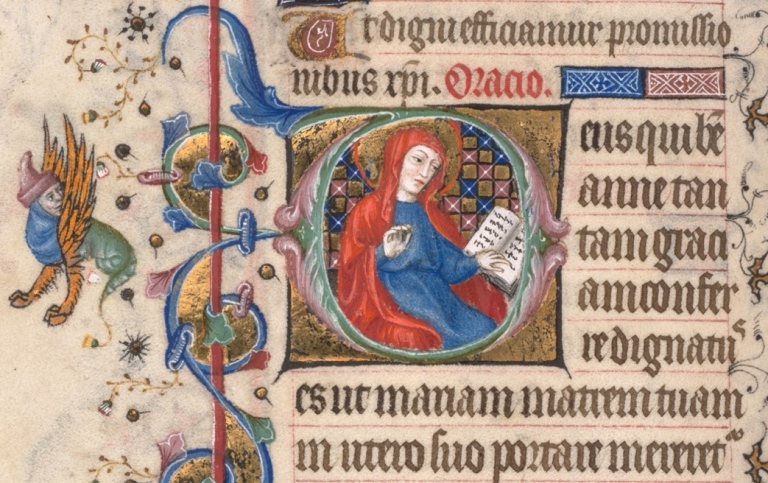 Ut digni efficiamur promissio
nibus xpi. Oracio.
Deus qui bẽ
anne tan
tam graci
am confer
re dignatus
es ut mariam matrem tuam
in utero suo portare mereret